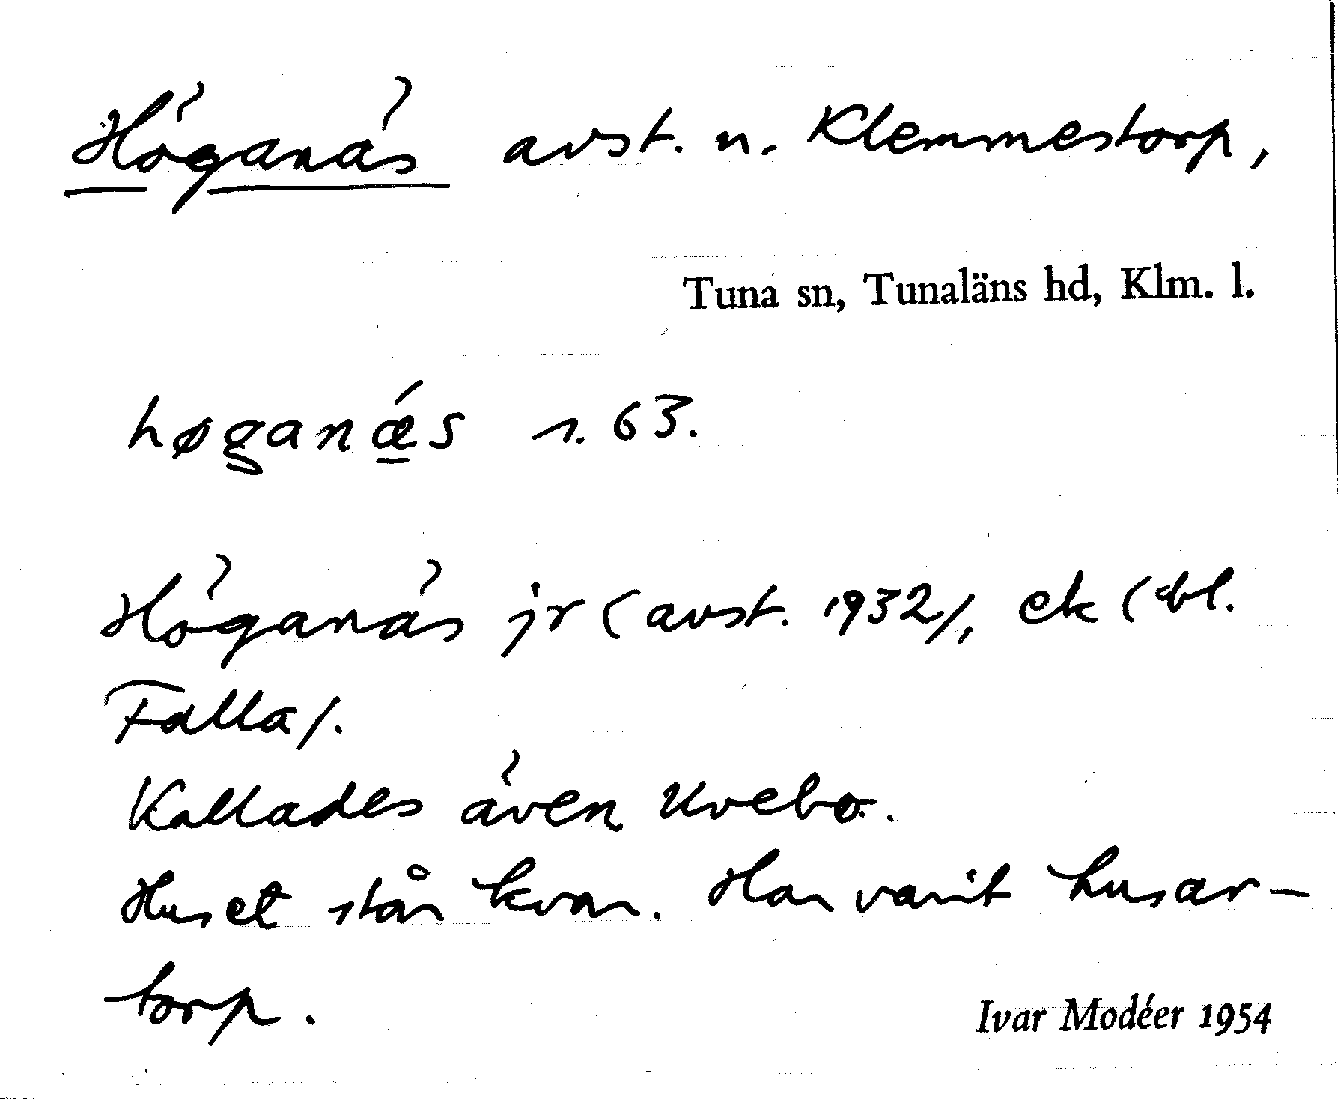 Höganäs avst. n. Klemmestorp,
Tuna sn, Tunaläns hd, Klm. l.
høganǽs s. 63.
Höganäs jr (avst. 1932/, ek (bl.
Falla/.
Kallades även Kvebo.
Huset står kvar. Har varit husar-
torp.
Ivar Modéer 1954